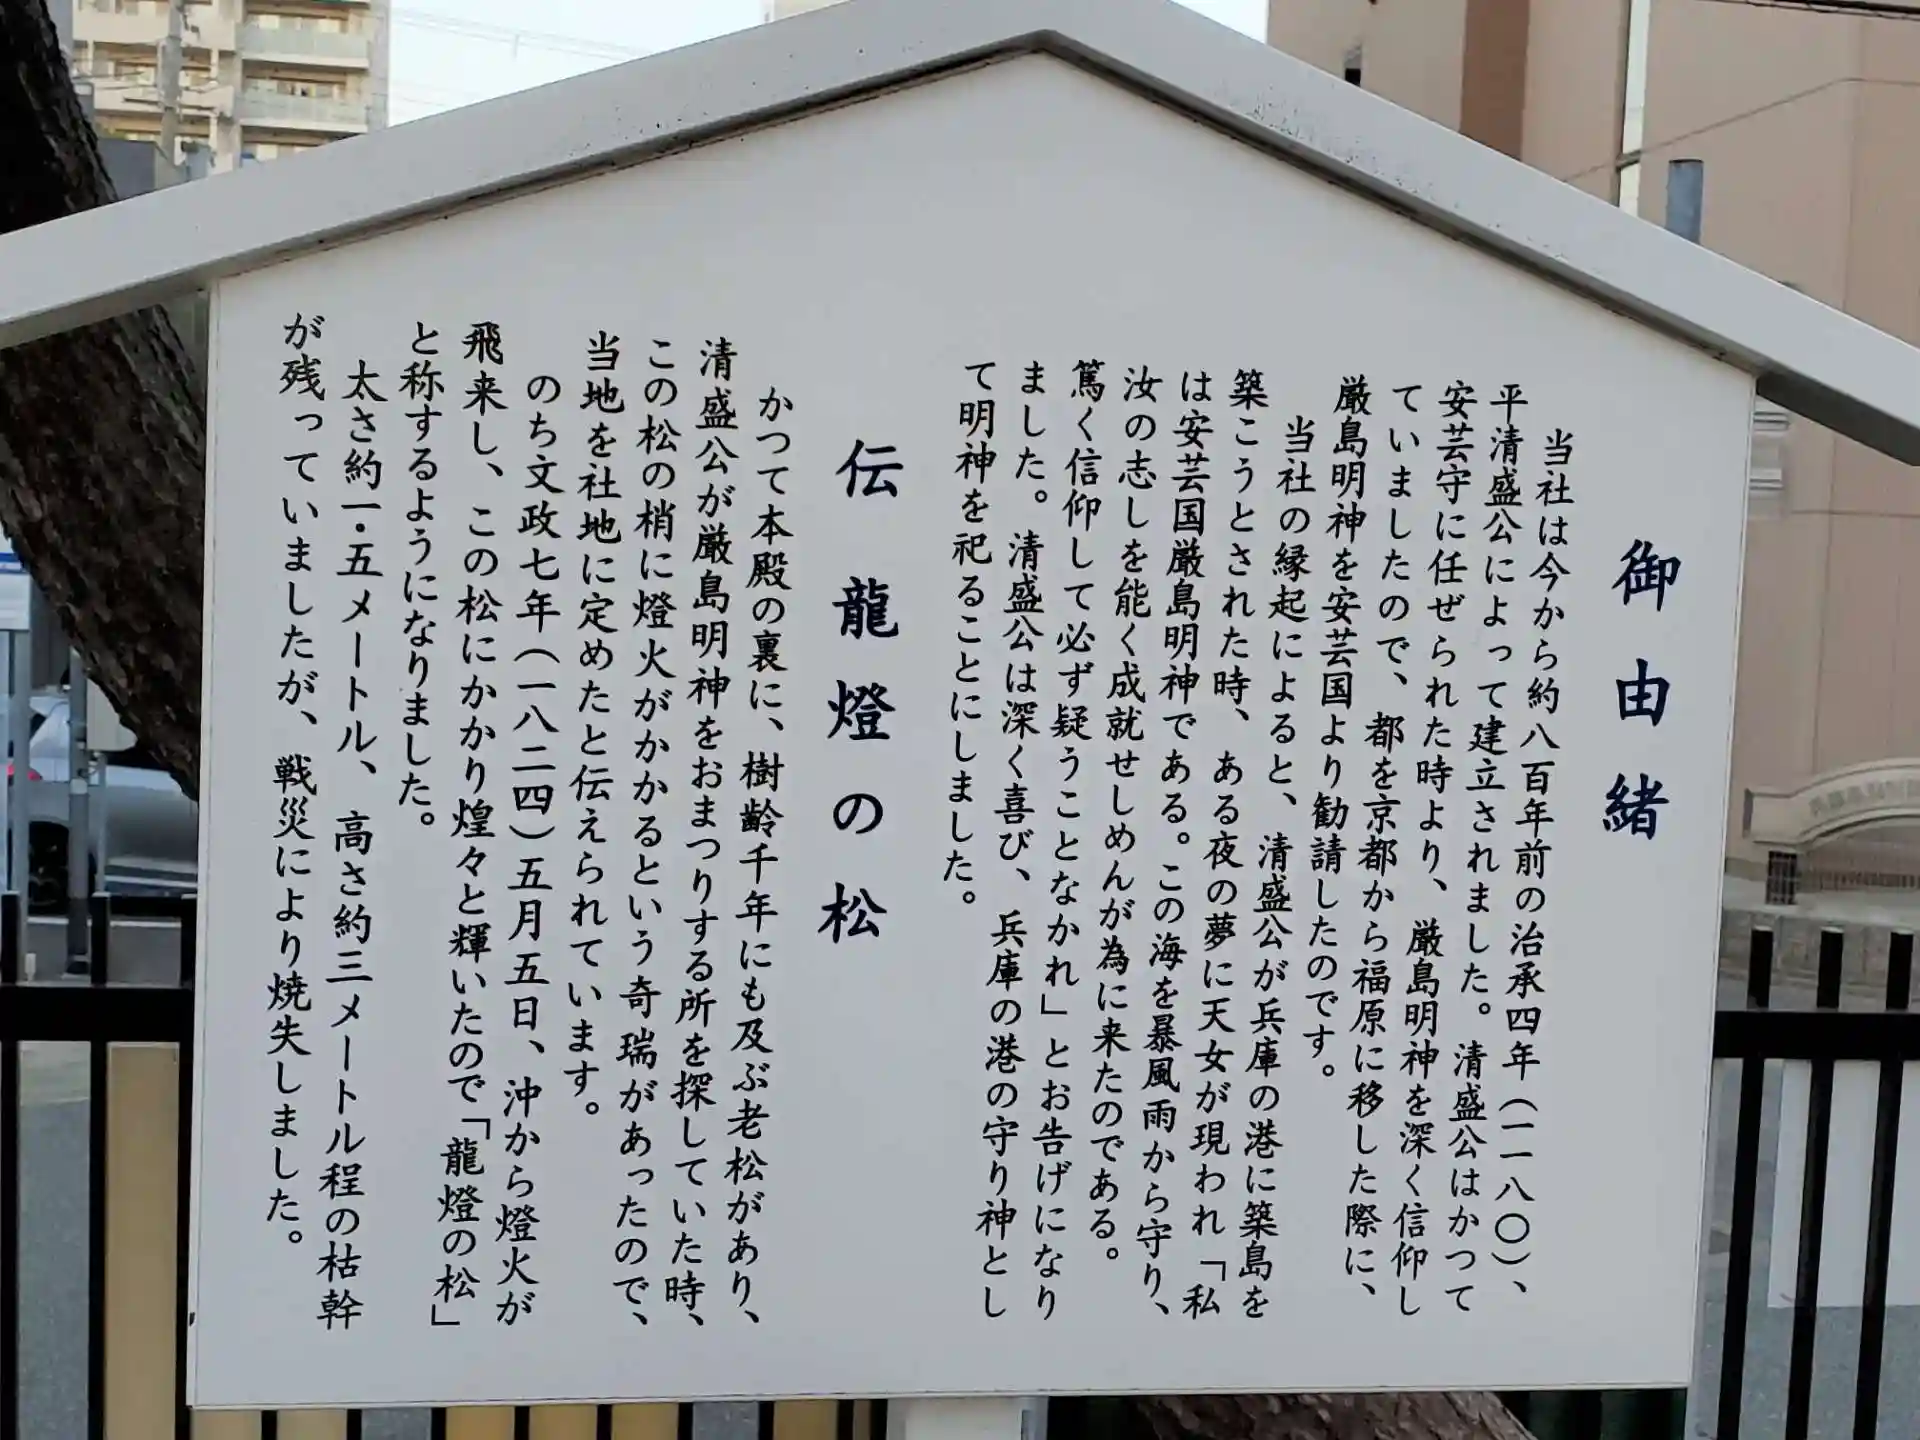 御由緒
当社は今から約八百年前の治承四年（一一八〇）、
平清盛公によって建立されました。清盛公はかつて
安芸守に任ぜられた時より、厳島明神を深く信仰し
ていましたので、都を京都から福原に移した際に、
厳島明神を安芸国より勧請したのです。
当社の縁起によると、清盛公が兵庫の港に築島を
築こうとされた時、ある夜の夢に天女が現われ「私
は安芸国厳島明神である。この海を暴風雨から守り、
汝の志しを能く成就せしめんが為に来たのである。
篤く信仰して必ず疑うことなかれ」とお告げになり
ました。清盛公は深く喜び、兵庫の港の守り神とし
て明神を祀ることにしました。
伝龍燈の松
かつて本殿の裏に、樹齢千年にも及ぶ老松があり、
清盛公が厳島明神をおまつりする所を探していた時、
この松の梢に燈火がかかるという奇瑞があったので、
当地を社地に定めたと伝えられています。
のち文政七年（一八二四）五月五日、沖から燈火が
飛来し、この松にかかり煌々と輝いたので「龍燈の松」
と称するようになりました。
太さ約一・五メートル、高さ約三メートル程の枯幹
が残っていましたが、戦災により焼失しました。